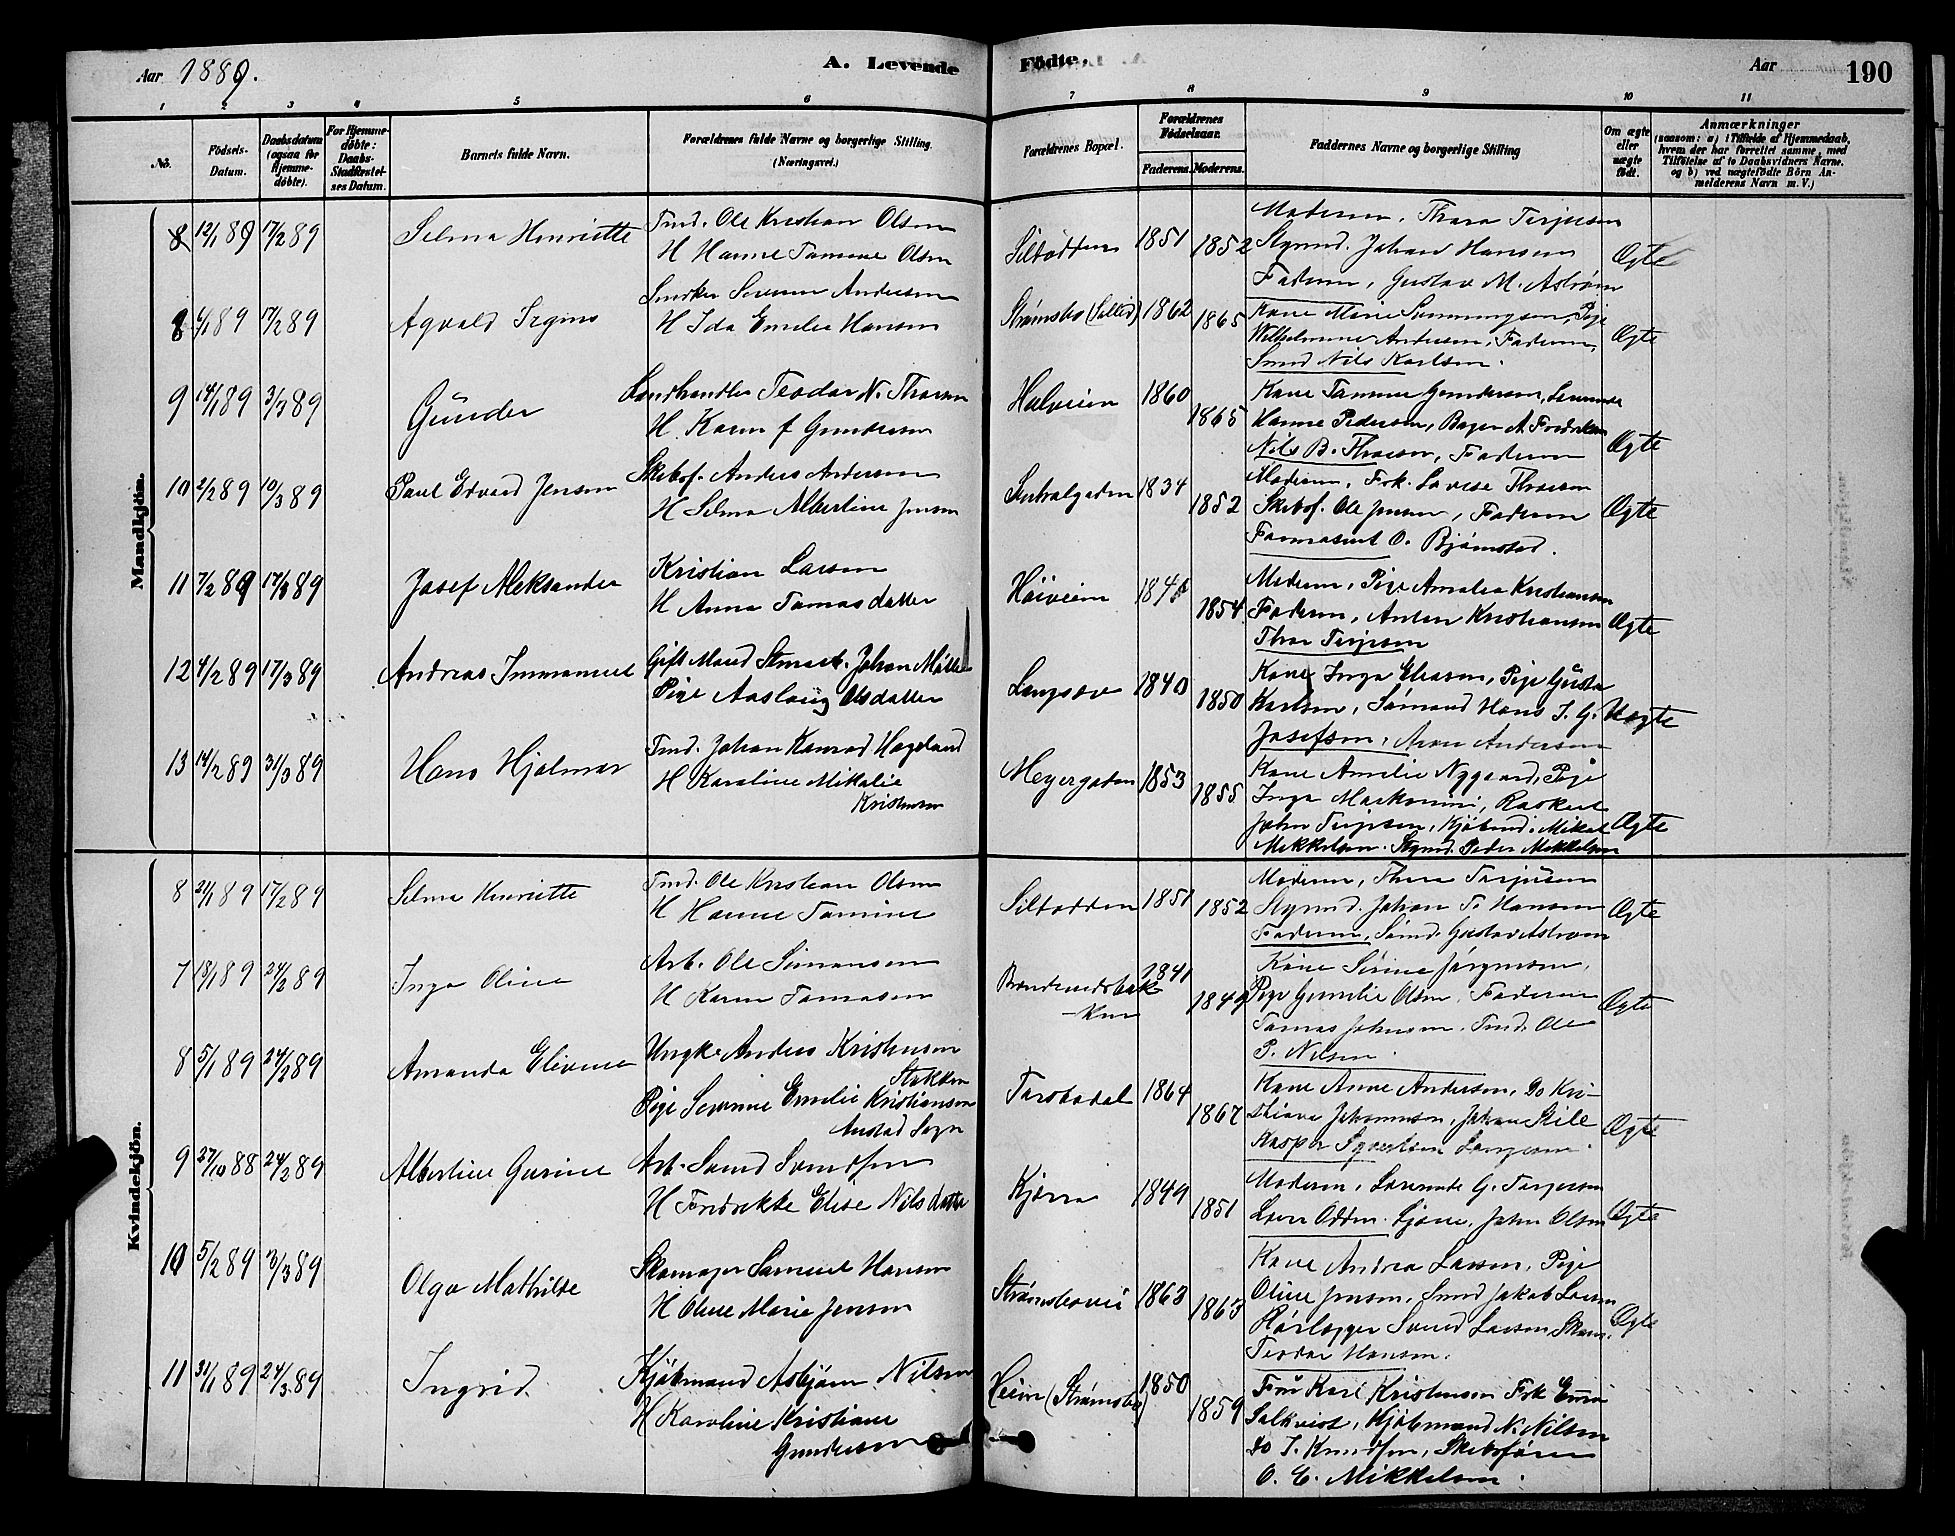 Aar 1889.
A. Levende Födte.
Aar 190
1 2 3 4 5 6 7 8 9 10 11
No.
Födsels-Datum.
Daabsdatum (ogsaa for Hjemme-döbte).
For Hjemme-döbte: Daabs-Stadfæstel-ses Datum.
Barnets fulde Navn.
Forældrenes fulde Navne og borgerlige Stilling. (Næringsvei.)
Forældrenes Bopæl.
Forældrenes Födselsaar.
Faderens. Moderens.
Faddernes Navne og borgerlige Stilling
Om ægte eller uægte födt.
Anmærkninger
(saasom: a) i Tilfælde af Hjemmedaab, hvem der har forrettet samme, med Tilföielse af to Daabsvidners Navne. og b) ved uægtefödte Börn An-melderens Navn m. V.)
Mandkjön.
8 12/1 89 17/2 89 Selma Henriette
Tmd. Ole Kristian Olsen
H Hanne Tamine Olsen
Siltodden 1851 1852
Moderen, Thara Terjesen
Styrmd. Johan Hansen
Faderen, Gustav M. Astrøm
Ægte
8 6/1 89 17/2 89 Agvald
Smeker Severin Andersen
H Ida Emilie Hansen
Strømsbo 1862 1865
Kone Marie Pige
Wilhelmine Andersen, Faderen,
Smed Nils Karlsen.
Ægte
9 14/1 89 3/3 89 Günder
Landhandler Teodor N. Thorsen
H. Karen f Gundersen
1860 1865
Kone Tamine Gundersen,
Hanne Pedersen, Bager A Fredriksen
Nils B. Thorsen, Faderen
Ægte
10 2/2 89 10/3 89 Paul Edvard Jensen
Skibsf. Anders Andersen
H Selma Albertine Jensen
Sentralgaden 1834 1852
Moderen, Frk. Lovise Thorsen
Skibsf. Ole Jensen, Faderen
Farmaseut O. Bjørnstad.
Ægte
11 7/2 89 17/3 89 Josef Aleksander
Kristian Larsen
H Anna Tomasdatter
Höiveien 1854
Moderen, Pige Amalia Kristiansen
Faderen, Anton Kristiansen
Thor Terjesen
Ægte
12 4/2 89 17/3 89 Andreas Immanuel
Gift Mand Johan Møller
Pige Aaslaug Olsdatter
Langsæv 1840 1850
Kone Inga Eliasen, Pige Gusta
Karlsen, Sømand Hans J. G.
Josefsen, Arne Andersen
Uægte
13 14/2 89 31/3 89 Hans Hjalmar
Tmd. Johan Konrad Hageland
H Karoline Mikalie
Kristensen
Meyergaden 1853 1855
Kone Amelie Nygaard, Pige
Inga
John Terjesen, Kjøbmd. Mikal
Mikkelsen. Styrmd. Peder Mikkelsen
Ægte
Kvindekjön.
8 21/1 89 17/2 89 Selma Henriette
Tmd. Ole Kristian Olsen
H Hanne Tamine
Siltodden 1851 1852
Moderen, Thara Terjesen
Styrmd. Johan T. Hansen
Faderen, Sømd. Gustav Astrøm
Ægte
7 18/1 89 24/2 89 Inga Oline
Arb. Ole Simonsen
H Karen Tomasen
1841 1849
Kone Serine Jørgensen,
Pige Gunelie Olsen, Faderen
Tomas Johnsen. Tmd. Ole
P. Nilsen.
Ægte
8 5/1 89 24/2 89 Amanda
Ungk. Anders Kristensen
Stokken
Pige Severine Emilie Kristiansen
Austad Sogn
Torsbudal 1864 1867
Kone Anne Andersen, Do Kri-
stiane Johannesen, Johan
Kasper Syvertsen
Ægte
9 27/10 88 24/2 89 Albertine Gurine
Arb. Svend Svendsen
H Fredrikke Elise Nilsdatter
1849 1851
Moderen, G. Terjesen
John Olsen
Ægte
10 5/2 89 3/3 89 Olga Mathilde
Skomager Samuel Hansen
H Oline Marie Jensen
Strømsbovei 1863 1863
Kone Andrea Larsen, Pige
Oline Jensen, Smed Jakob Larsen
Rørlægger Svend Larsen, Skom.
Teodor Hansen.
Ægte
11 31/1 89 24/3 89 Ingrid
Kjöbmand Asbjørn Nilsen
H Karoline Kristiane
Gundersen
1850 1859
Fru Kari Kristensen Frk Emma
Salkvist, Kjöbmand N. Nilsen
Do T. Knudsen, Skibsføren
O. E. Mikkelsen.